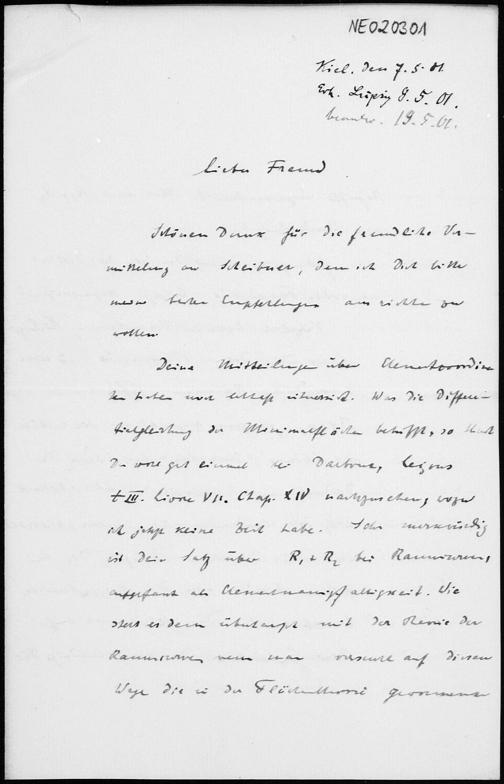 NEO20301
Kiel, den 7.5.01
Erh. Leipzig 8.5.01.
beantw. 19.5.01.
Lieber Freund
Schönen Dank für die freundliche Ver-
mittelung an Scheibner, dem ich Dich bitte
meine besten Empfehlungen ausrichten zu
wollen.
Deine Mittheilungen über Elementcoordina-
ten haben mich lebhaft interessirt. Was die Differen-
tialgleichung der Minimalflächen betrifft, so
Du wohl gut einmal bei Darboux, Leçons
t III. Livre VII. Chap. XIV nachzusehen, wozu
ich jetzt keine Zeit habe. Sehr merkwürdig
ist Dein Satz über R₁ + R₂ bei Raumcurven,
aufgefasst als Elementmannigfaltigkeit. Wie
steht es denn überhaupt mit der Theorie der
Raumcurven, wenn man versucht auf diesem
Wege die in der Flächentheorie gewonnenen